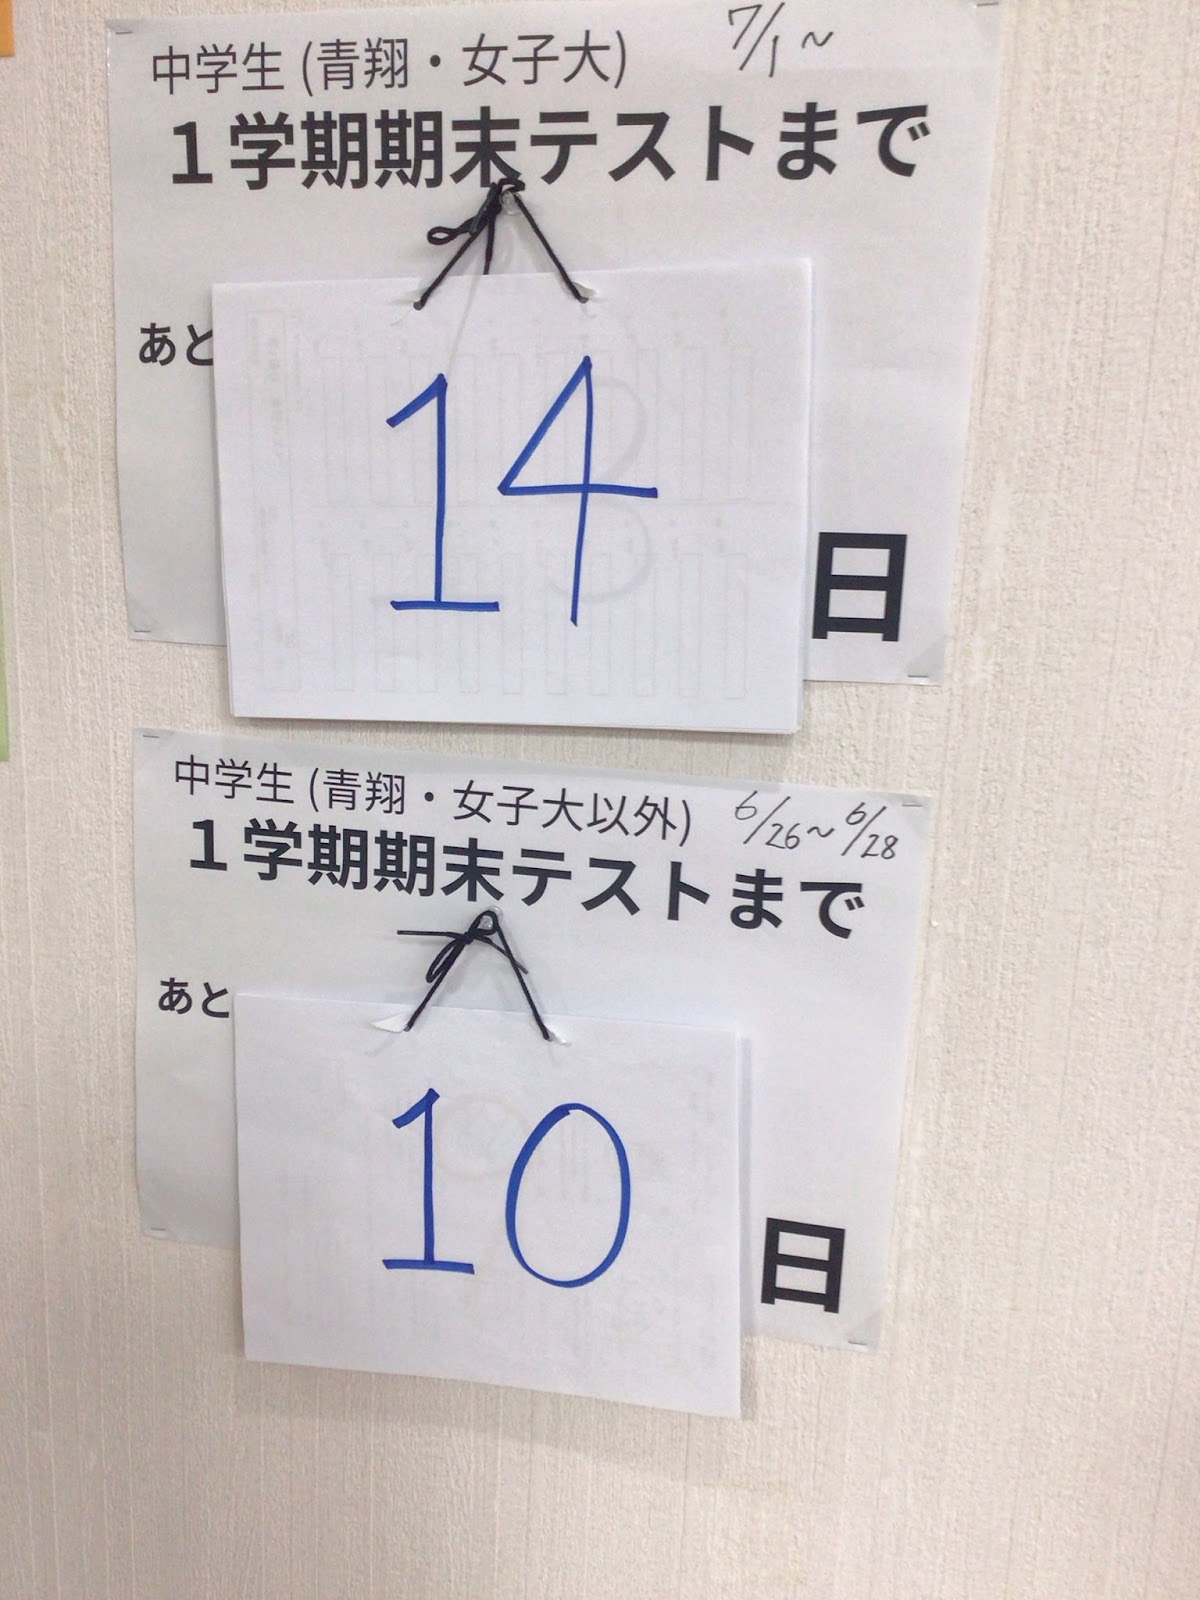 中学生(青翔・女子大) 7/1~
1学期期末テストまで
あと
14
日
中学生(青翔・女子大以外) 6/26~6/28
1学期期末テストまで
あと
10
日